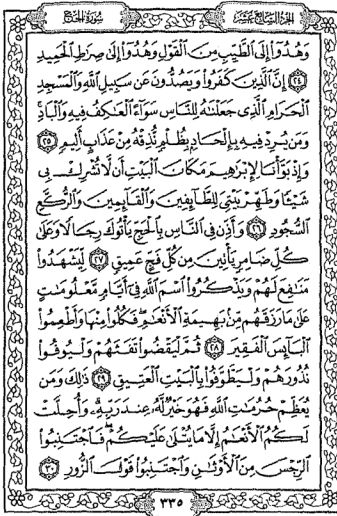 سورة الحج
الجزء السابع عشر
وَهُدُوٓا۟ إِلَى ٱلطَّيِّبِ مِنَ ٱلْقَوْلِ وَهُدُوٓا۟ إِلَىٰ صِرَٰطِ ٱلْحَمِيدِ
٢٤ إِنَّ ٱلَّذِينَ كَفَرُوا۟ وَيَصُدُّونَ عَن سَبِيلِ ٱللَّهِ وَٱلْمَسْجِدِ
ٱلْحَرَامِ ٱلَّذِى جَعَلْنَٰهُ لِلنَّاسِ سَوَآءً ٱلْعَٰكِفُ فِيهِ وَٱلْبَادِ
وَمَن يُرِدْ فِيهِ بِإِلْحَادٍۭ بِظُلْمٍ نُّذِقْهُ مِنْ عَذَابٍ أَلِيمٍ ٢٥
وَإِذْ بَوَّأْنَا لِإِبْرَٰهِيمَ مَكَانَ ٱلْبَيْتِ أَن لَّا تُشْرِكْ بِى
شَيْـًٔا وَطَهِّرْ بَيْتِىَ لِلطَّآئِفِينَ وَٱلْقَآئِمِينَ وَٱلرُّكَّعِ
ٱلسُّجُودِ ٢٦ وَأَذِّن فِى ٱلنَّاسِ بِٱلْحَجِّ يَأْتُوكَ رِجَالًا وَعَلَىٰ
كُلِّ ضَامِرٍ يَأْتِينَ مِن كُلِّ فَجٍّ عَمِيقٍ ٢٧ لِّيَشْهَدُوا۟
مَنَٰفِعَ لَهُمْ وَيَذْكُرُوا۟ ٱسْمَ ٱللَّهِ فِىٓ أَيَّامٍ مَّعْلُومَٰتٍ
عَلَىٰ مَا رَزَقَهُم مِّنۢ بَهِيمَةِ ٱلْأَنْعَٰمِ ۖ فَكُلُوا۟ مِنْهَا وَأَطْعِمُوا۟
ٱلْبَآئِسَ ٱلْفَقِيرَ ٢٨ ثُمَّ لْيَقْضُوا۟ تَفَثَهُمْ وَلْيُوفُوا۟
نُذُورَهُمْ وَلْيَطَّوَّفُوا۟ بِٱلْبَيْتِ ٱلْعَتِيقِ ٢٩ ذَٰلِكَ وَمَن
يُعَظِّمْ حُرُمَٰتِ ٱللَّهِ فَهُوَ خَيْرٌ لَّهُۥ عِندَ رَبِّهِۦ ۗ وَأُحِلَّتْ
لَكُمُ ٱلْأَنْعَٰمُ إِلَّا مَا يُتْلَىٰ عَلَيْكُمْ ۖ فَٱجْتَنِبُوا۟
ٱلرِّجْسَ مِنَ ٱلْأَوْثَٰنِ وَٱجْتَنِبُوا۟ قَوْلَ ٱلزُّورِ ٣٠
٣٣٥